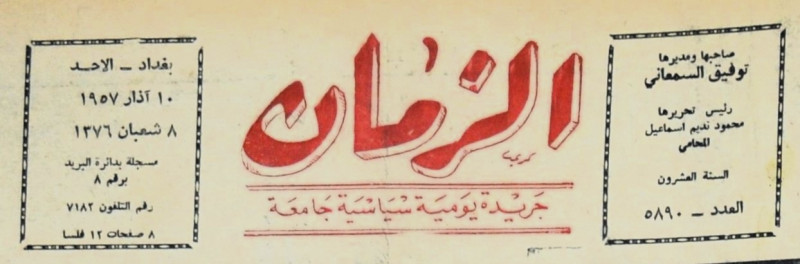 صاحبها ومديرها
توفيق السمعاني
رئيس تحريرها
محمود نديم اسماعيل
المحامي
السنة العشرون
العدد – ٥٨٩٠
الزمان
جريدة يومية سياسية جامعة
بغداد – الاحد
١٠ آذار ١٩٥٧
٨ شعبان ١٣٧٦
مسجلة بدائرة البريد
برقم ٨
رقم التلفون ٧١٨٢
٨ صفحات ١٢ فلسا